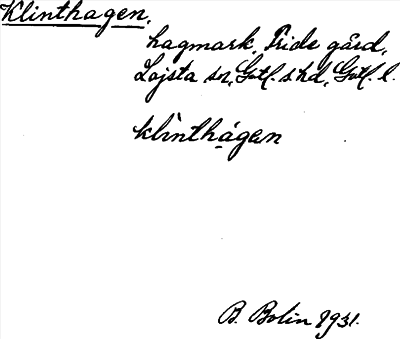 Klinthagen,
hagmark, Pride gård,
Lojsta sn, Gotl. s. hd, Gotl. l.
klìnthágen
B. Bolin 1931.